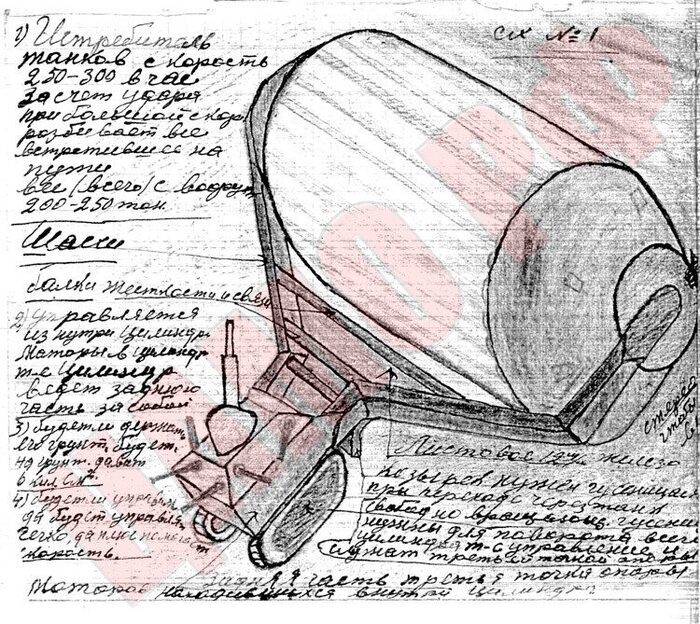 сх № 1
1) Истребитель
танков скорость
250-300 в час
За счет удара
при большой скор.
разбивает все
встретившееся на
пути
вес (всего) с вооруж
200-250 тон.
Шасси
балки жесткости и связи
2) управляется
из нутри цилиндр.
Моторы в цилиндр
т-е цилиндр
ведет заднюю
часть за собой
3) будет ли держать
его грунт, будет.
на грунт. давит
6 кил см²
4) будет ли управл.
да будет управля
легко, да плюс помогает
скорость.
Листовое железо
козырек нужен гусеница
при переходе через танк
свободно вращающ. гусениц
нужны для поворота всего
цилиндра т-е управление и
служат третьей точкой опоры
задняя часть третья точка опоры.
Моторов находящихся внутри цилиндра
ЦАМО РФ